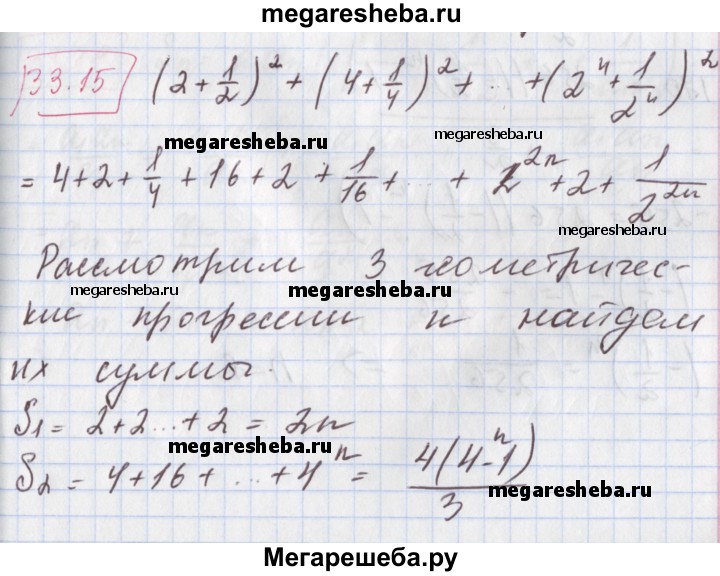 megaresheba.ru
33.15 (2 + 1/2)² + (4 + 1/4)² + ... + (2ⁿ + 1/2ⁿ)²
megaresheba.ru megaresheba.ru
= 4 + 2 + 1/4 + 16 + 2 + 1/16 + ... + 2²ⁿ + 2 + 1/2²ⁿ
megaresheba.ru
Рассмотрим 3 геометричес-
megaresheba.ru megaresheba.ru megaresheba.ru
кие прогрессии и найдем
их суммы.
S₁ = 2 + 2 ... + 2 = 2n
megaresheba.ru
S₂ = 4 + 16 + ... + 4ⁿ = 4(4ⁿ-1)/3
megaresheba.ru
Мегарешеба.ру